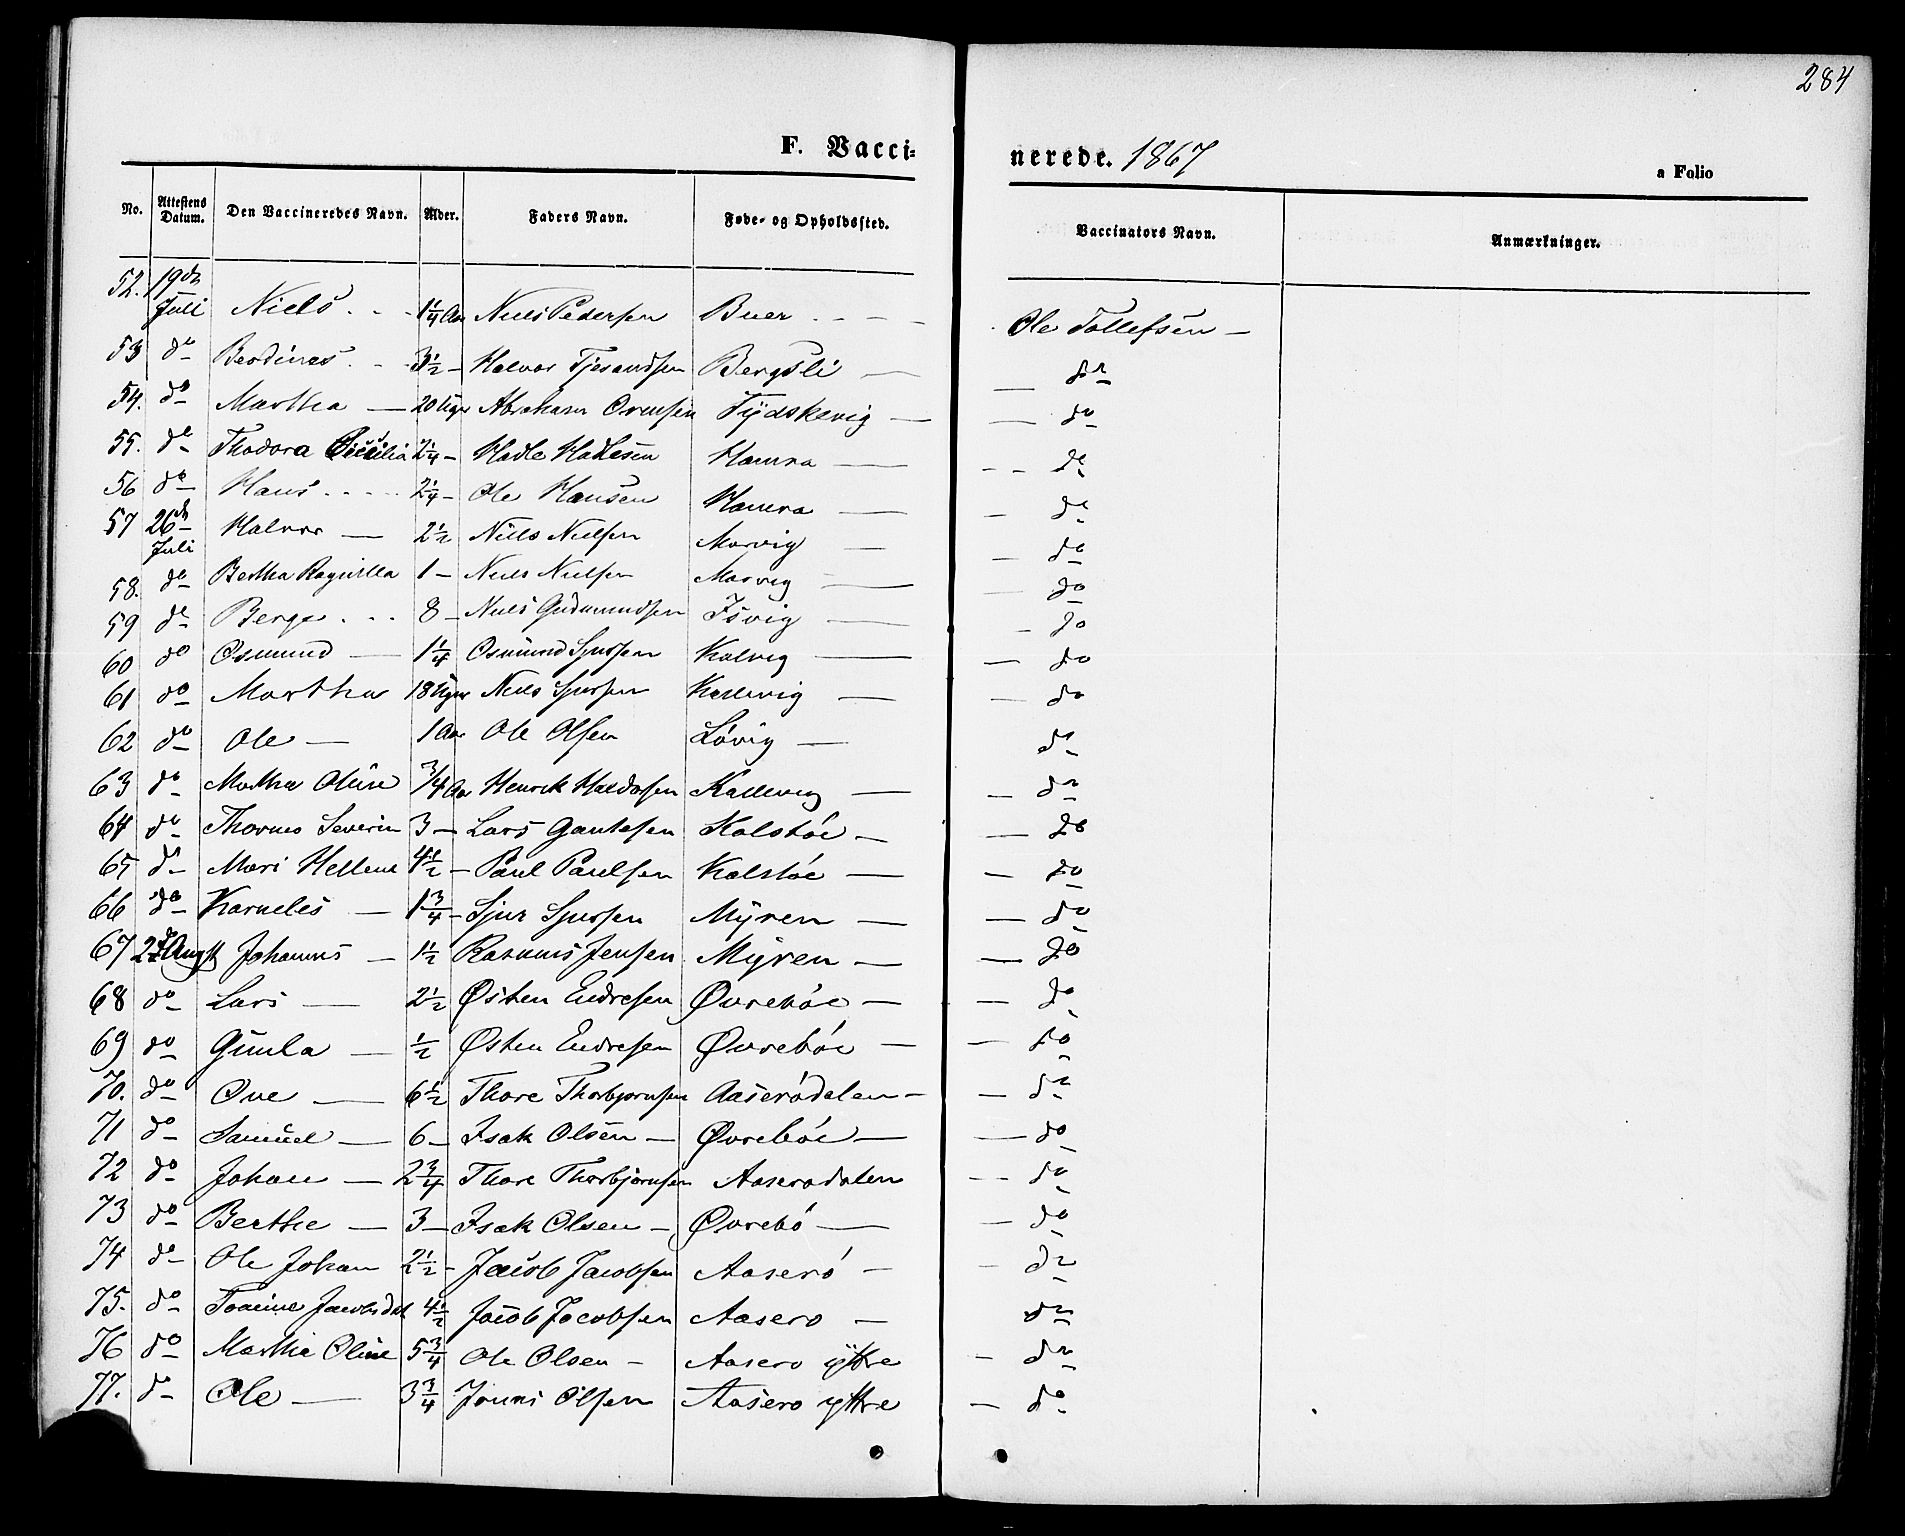 284
F. Vacci-nerede. 1867
a Folio
No. Attestens Datum. Den Vaccineredes Navn. Alder. Faders Navn. Føde- og Opholdssted. Vaccinators Navn. Anmærkninger.
52. 19de Juli Niels 1 1/4 Aar Niels Pedersen Buer Ole Tollefsen
53 do 3 1/2 Halvor Bergsli do
54. do Martha 20 Uger Abraham Tydskevig do
55. do Thodora Cicilia 2 1/4 Hadle Hadlesen Hamra do
56 do Hans 2 1/4 Ole Hansen Hamra do
57 26de Juli Halvor 2 1/2 Niels Nielsen Marvig do
58. do Bertha Ragnilla 1 Niels Nielsen Marvig do
59 do 8 Niels Gudmundsen Isvig do
60 do Osmund 1 1/4 Osmund Sjursen Kalvig do
61 do Martha 18 Uger Niels Sjursen do
62 do Ole 1 Aar Ole Olsen Løvig do
63 do Martha Oline 3/4 Aar Henrik Kallevig do
64 do Severin 3 Lars Gautesen Kalstøe do
65 do Mari Hellene 4 1/2 Paul Paulsen Kalstøe do
66 do Karneles 1 3/4 Sjur Sjursen Myren do
67 Augst Johannes 1 1/2 Rasmus Jensen Myren do
68 do Lars 2 1/2 Østen Endresen Øvrebøe do
69 do Gunla 1/2 Østen Endresen Øvrebøe do
70. do Ove 6 1/2 Thore Thorbjørnsen Aaserødalen do
71 do Samuel 6 Isak Olsen Øvrebøe do
72 do Johan 2 3/4 Thore Thorbjørnsen Aaserodalen do
73 do Berthe 3 Isak Olsen Øvrebø do
74 do Ole Johan 2 1/2 Jacob Jacobsen Aaserø do
75. do 4 1/2 Jacob Jacobsen Aasero do
76 do Marthe Oline 5 3/4 Ole Olsen Aasero yttre do
77. do Ole 3 3/4 Olsen Aasero yttre do